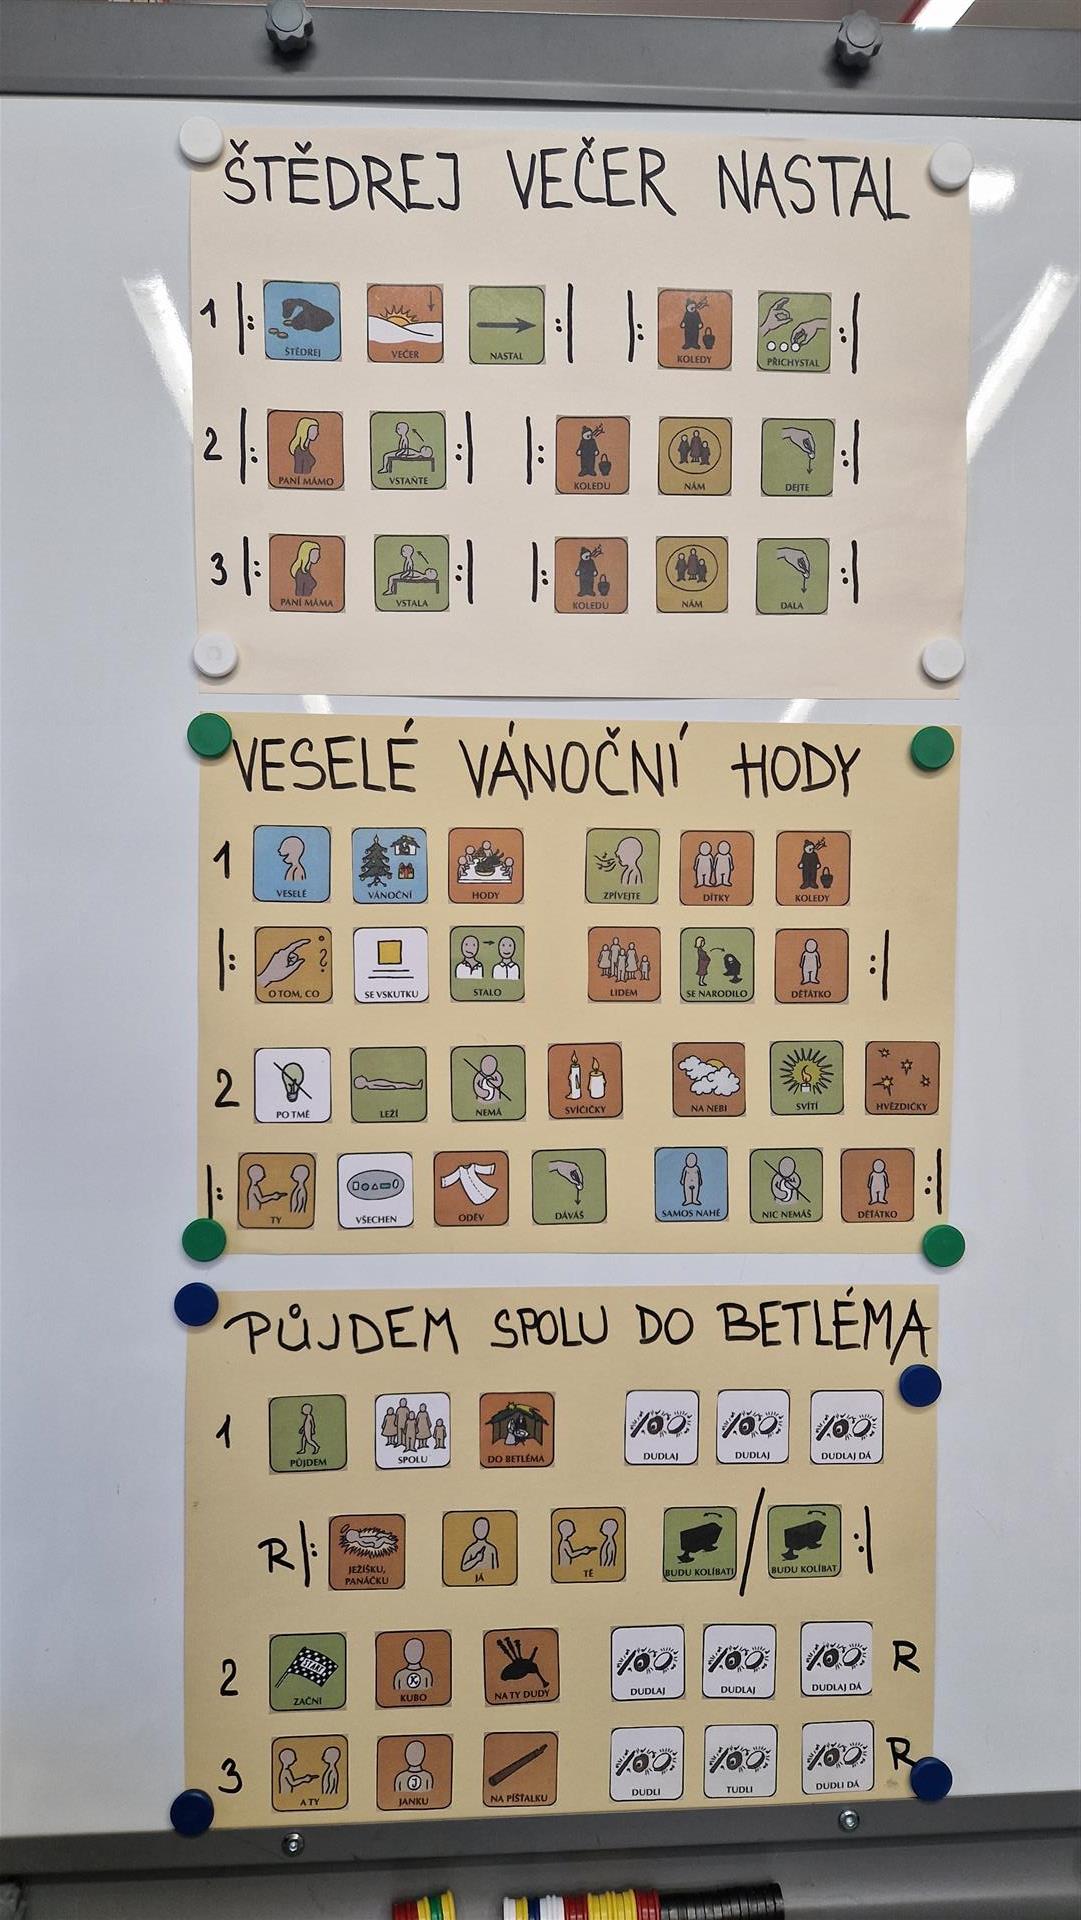 ŠTĚDREJ VEČER NASTAL
1 |: ŠTĚDREJ VEČER NASTAL :| |: KOLEDY PŘICHYSTAL :|
2 |: PANÍ MÁMO VSTAŇTE :| |: KOLEDU NÁM DEJTE :|
3 |: PANÍ MÁMA VSTALA :| |: KOLEDU NÁM DALA :|
VESELÉ VÁNOČNÍ HODY
1 VESELÉ VÁNOČNÍ HODY ZPÍVEJTE DÍTKY KOLEDY
|: O TOM, CO SE VSKUTKU STALO LIDEM SE NARODILO DĚŤÁTKO :|
2 PO TMĚ LEŽÍ NEMÁ SVÍČIČKY NA NEBI SVÍTÍ HVĚZDIČKY
|: TY VŠECHEN ODĚV DÁVÁŠ SAMOS NAHÉ NIC NEMÁŠ DĚŤÁTKO :|
PŮJDEM SPOLU DO BETLÉMA
1 PŮJDEM SPOLU DO BETLÉMA DUDLAJ DUDLAJ DUDLAJ DÁ
R |: JEŽÍŠKU, PANÁČKU JÁ TĚ BUDU KOLÍBATI / BUDU KOLÍBAT :|
2 ZAČNI START KUBO K NA TY DUDY DUDLAJ DUDLAJ DUDLAJ DÁ R
3 A TY JANKU J NA PÍŠŤALKU DUDLI TUDLI DUDLI DÁ R